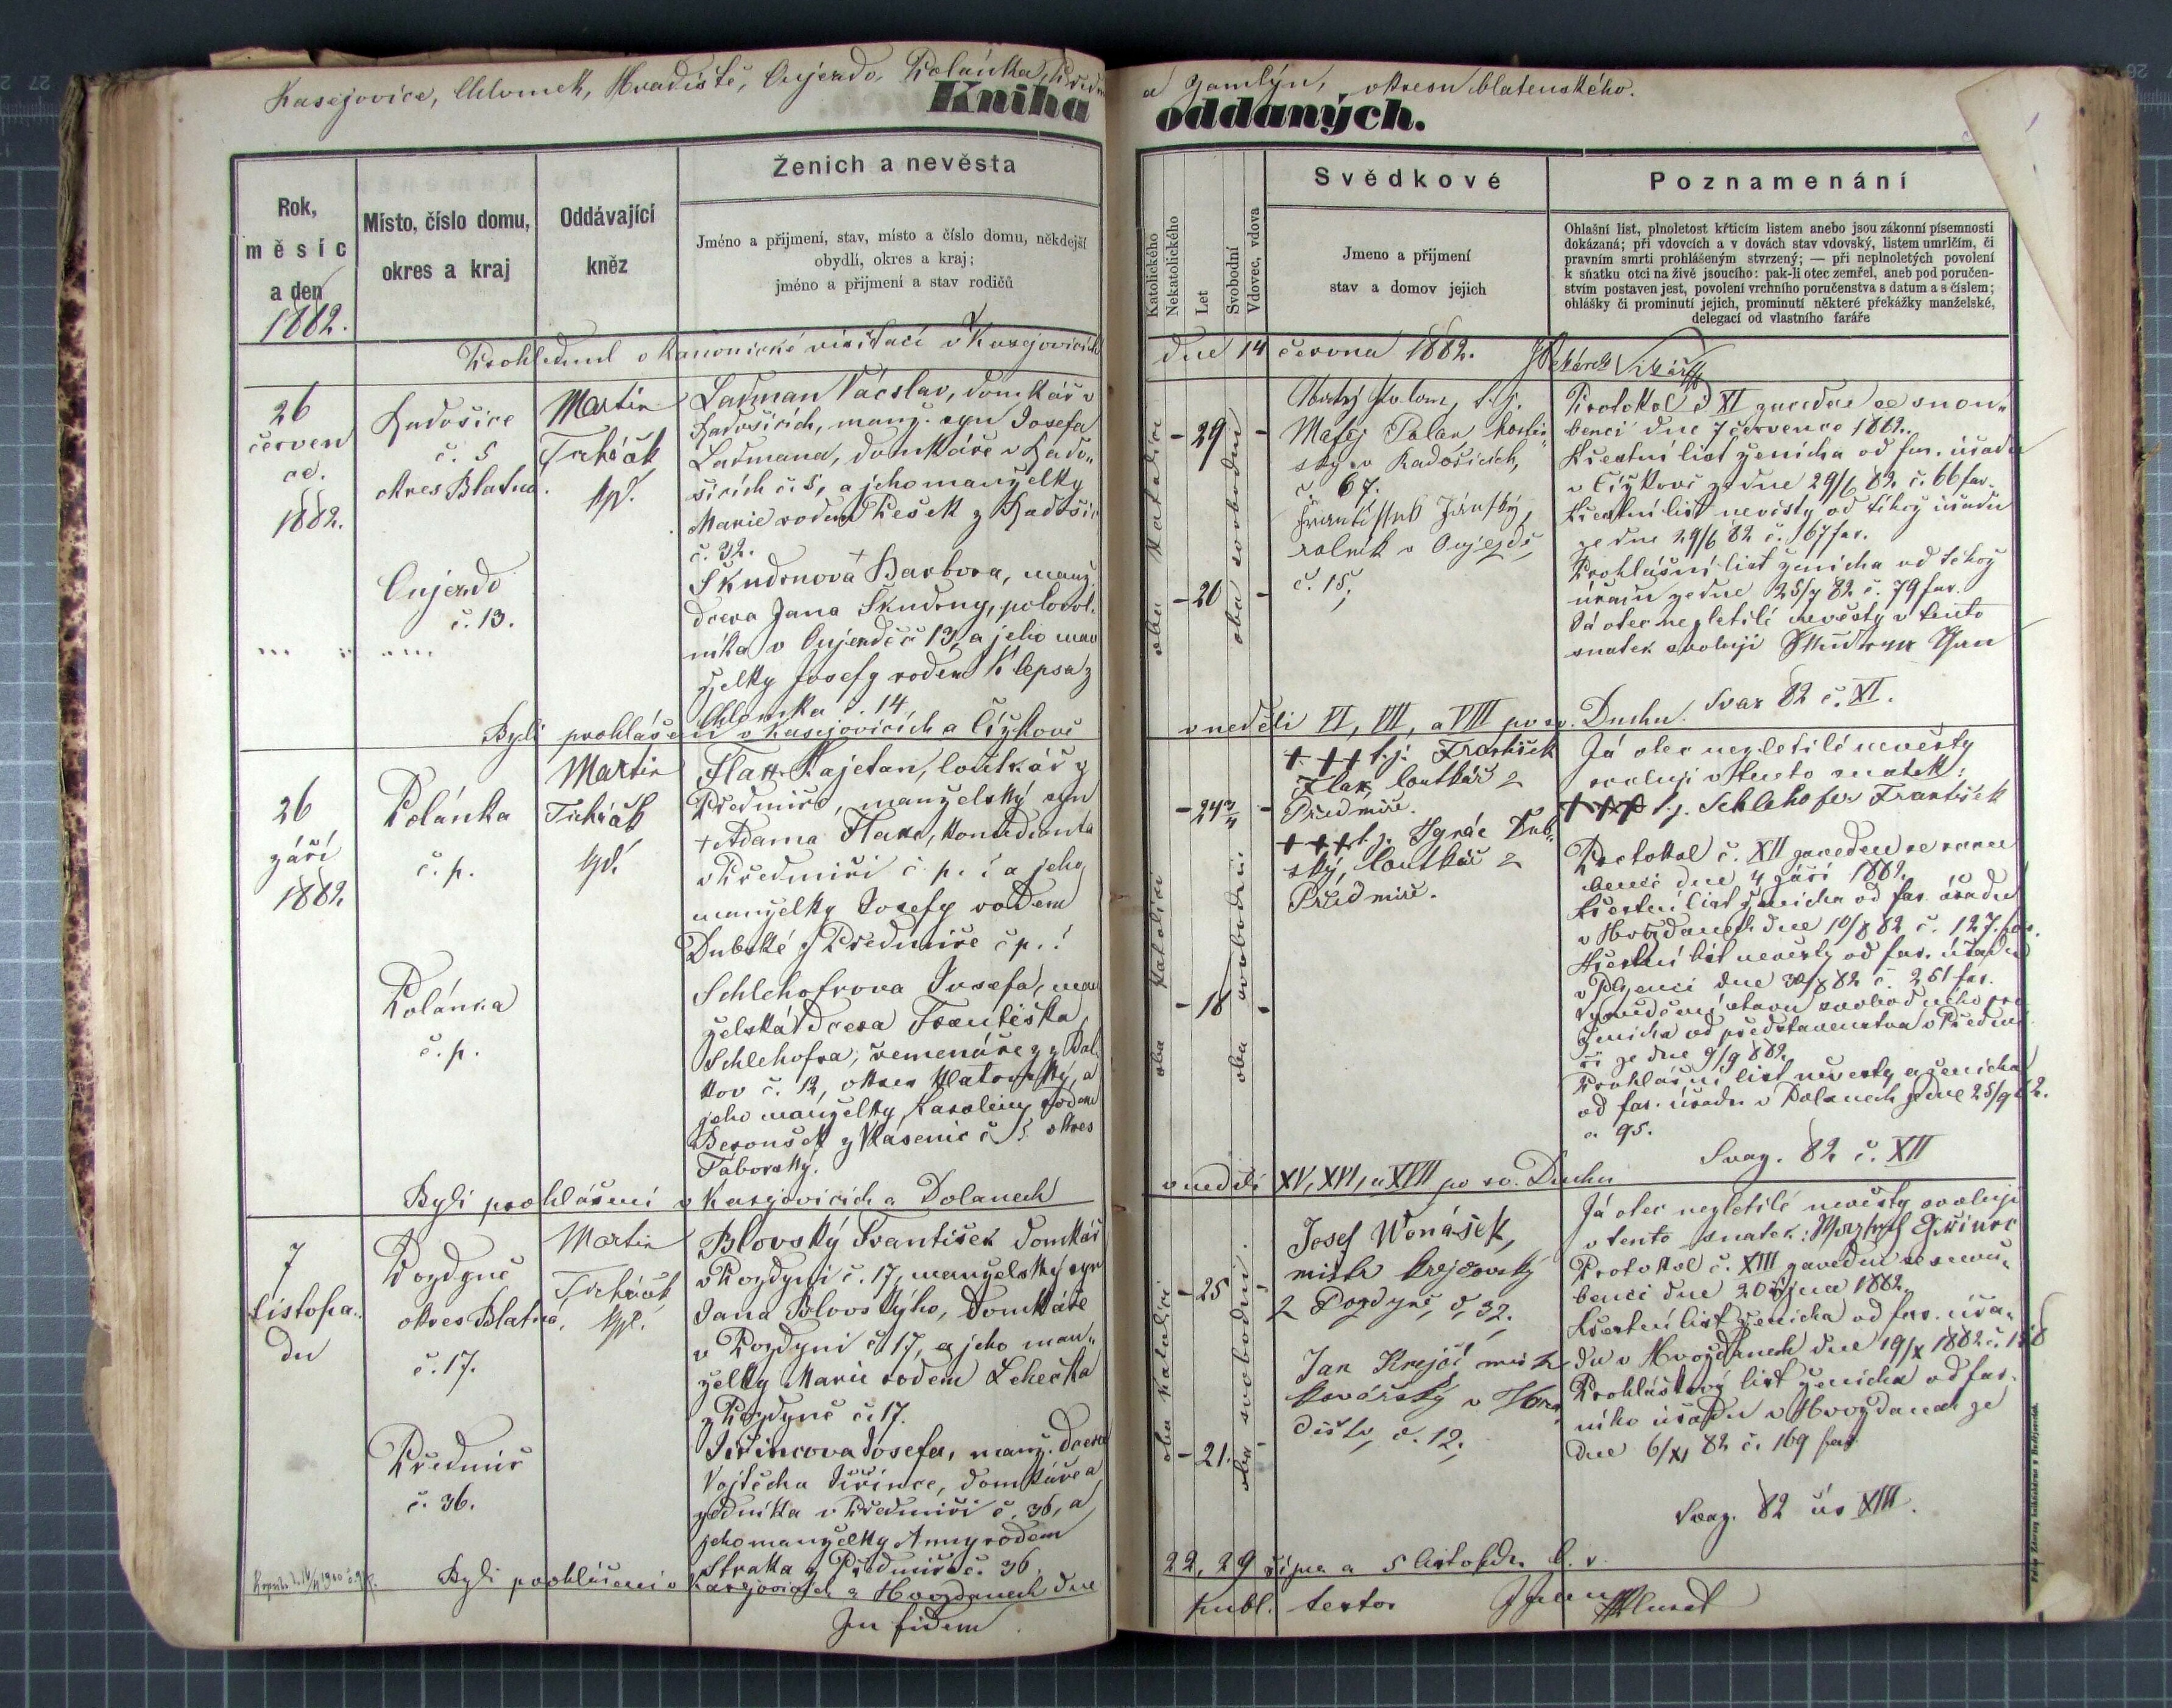 Kasejovice, Chlomek, Hradiště, Oujezdo, Polánka,
a Zamlýn, okresu blatenského.
Kniha oddaných.
Rok,
měsíc
a den
1882.
Místo, číslo domu,
okres a kraj
Oddávající
kněz
Ženich a nevěsta
Jméno a přijmení, stav, místo a číslo domu, někdejší
obydlí, okres a kraj;
jméno a přijmení a stav rodičů
Katolického
Nekatolického
Let
Svobodní
Vdovec, vdova
Svědkové
Jmeno a přijmení
stav a domov jejich
Poznamenání
Ohlašní list, plnoletost křticím listem anebo jsou zákonní písemnosti
dokázaná; při vdovcích a v dovách stav vdovský, listem umrlčím, či
pravním smrti prohlášeným stvrzený; — při neplnoletých povolení
k sňatku otci na živě jsoucího: pak-li otec zemřel, aneb pod poručen-
stvím postaven jest, povolení vrchního poručenstva s datum a s číslem;
ohlášky či prominutí jejich, prominutí některé překážky manželské,
delegací od vlastního faráře
Prohlédnul o kanonické visitaci v Kasejovicích
dne 14 června 1882.
26
červen
ce.
1882.
Radošice
č. 5
okres Blatná.
Martin
Trháček
kpl.
Ladman Václav, domkář v
Radošicích, manž. syn Josefa
Ladmana, domkáře v Rado„
šicích č. 5, a jeho manželky
Marie rodem Pešek z Radošic
č. 32.
Oujezdo
č. 13.
Škudrnová Barbora, manž.
dcera Jana Škudrny, polorol.
níka v Oujezdě č 13, a jeho man
želky Josefy rodem Klepsa z
Chlomka č. 14,
oba katolíci
- 29 -
- 20 -
oba svobodní
Matěj Polan hostin
ský v Radošicích,
č. 67.
František Jánský,
rolník v Oujezdě,
č. 15,
Protokol č XI zaveden se snou„
benci dne 7 července 1882.
Křestní list ženicha od far. úřadu
v Čížkově ze dne 29/6 82 č. 66 far.
Křestní list nevěsty od téhož úřadu
ze dne 29/6 82 č. 167 far.
Prohlášní list ženicha od téhož
úřadu ze dne 25/7 82 č. 79 far.
Já otec nezletilé nevěsty v tento
snatek svoluji Škudrna Jan
Svaz 82 č. XI.
Byli prohlášeni v Kasejovicích a Čížkově
v neděli VI, VII, a VIII po sv. Duchu.
26
září
1882
Polánka
č. p.
Martin
Trháček
kpl.
Flax Kajetan, loutkář z
Předmíře, manželský syn
+ Adama Flaxe, komedianta
v Předmíři č. p. 1 a jeho
manželky Josefy rodem
Dubské z Předmíře č p. 1
Polánka
č. p.
Schlehofrova Josefa, man
želská dcera Františka
Schlehofra, řemenáře z
kov č. 12, okres Klatovský, a
jeho manželky Karoliny rodem
Beroušek z Vásenic č 5. okres
Táborský.
oba katolíci
- 24 3/4 -
- 18 -
oba svobodní
+ + + t. j. František
Flax, loutkář z
Předmíře.
+ + + t. j. Ignác Dub„
ský, loutkář z
Předmíře.
Já otec nezletilé nevěsty
svoluji v tento snatek:
+ + + t. j. Schlehofer František
Protokol č. XII zaveden se snou
benci dne 4 září 1882.
Křestní list ženicha od far. úřadu
v Hvožďanech dne 10/8 82 č. 127 far.
Křestní list nevěsty od far. úřadu
v Plzenci dne 30/8 82 č. 251 far.
Vysvědčení stavu svobodného pro
ženicha od představenstva v Předmí
ři ze dne 9/9 882.
Prohlášní list nevěsty a ženicha
od far. úřadu v Dolanech ze dne 25/9 82.
č. 95.
Svaz. 82 č. XII
Byli prohlášeni v Kasejovicích a Dolanech
v neděli XV, XVI, a XVII po sv. Duchu
7
listopa„
du
Pozdyně
okres Blatná.
č. 17.
Martin
Trháček,
kpl.
Blovský František domkář
v Pozdyni č. 17, manželský syn
Jana Blovského, domkáře
v Pozdyni č. 17, a jeho man„
želky Marie rodem Lehečka
z Pozdyně č. 17.
Předmíř
č. 36.
Jiřincova Josefa, manž. dcera
Vojtěcha Jiřince, domkáře a
zedníka v Předmíři č. 36, a
jeho manželky Anny rodem
Straka z Předmíře č. 36.
oba katolíci
- 25 -
- 21. -
oba svobodní.
Josef Wonášek,
mistr krejčovský
z Pozdyně, č. 32.,
Jan Krejčí mistr
kovářský v Hra
dišti, č. 12.,
Já otec nezletilé nevěsty svoluji
v tento snatek: Vojtěch Jiřinec
Protokol č. XIII zaveden se snou„
benci dne 20 října 1882.
Křestní list ženicha od far. úřa„
du v Hvožďanech dne 19/X 1882 č. 158
Prohláškový list ženicha od far.
ního úřadu v Hvožďanech ze
dne 6/XI 82 č. 169 far.
Svaz. 82 čís XIII.
Byli prohlášeni v Kasejovicích a Hvožďanech dne
22, 29 října a 5 listopadu t. r.
In fidem
publ. testor